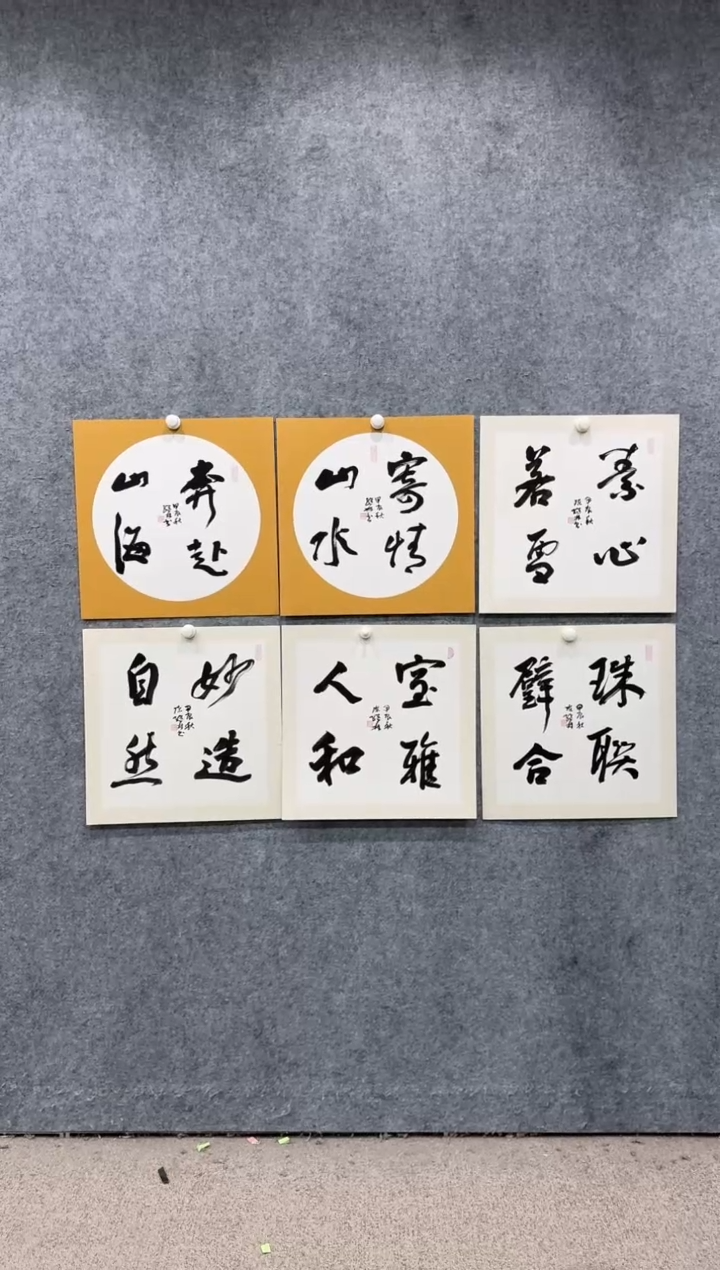 奔赴
山海
甲辰秋
寄情
山水
甲辰秋
素心
若雪
甲辰秋
妙造
自然
甲辰秋
室雅
人和
甲辰秋
珠联
璧合
甲辰秋